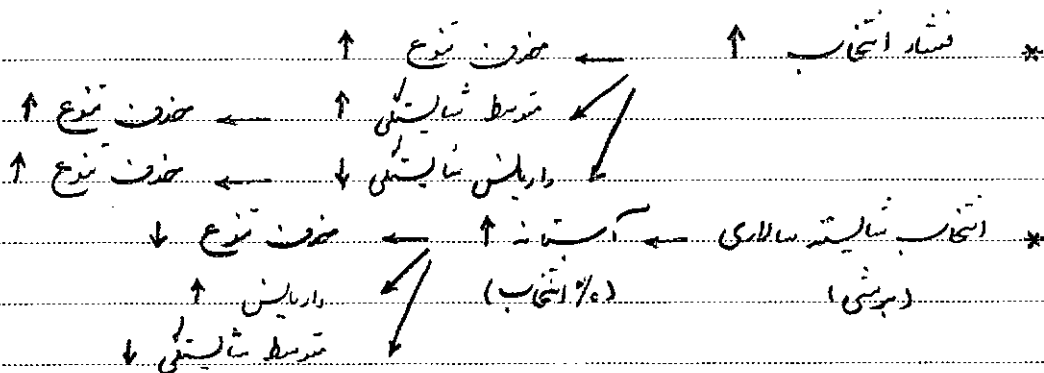 * فشار انتخاب ↑ ← حذف تنوع ↑
متوسط شایستگی ↑ ← حذف تنوع ↑
واریانس شایستگی ↓ ← حذف تنوع ↑
* انتخاب شایسته سالاری ← آستانه ↑ ← حذف تنوع ↓
(برشی) (% انتخاب) واریانس ↑
متوسط شایستگی ↓